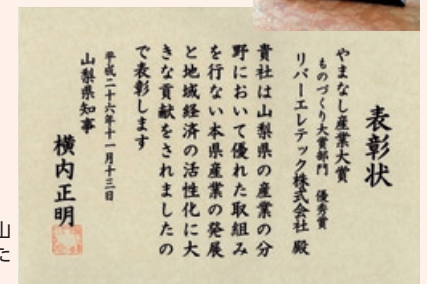 表彰状
やまなし産業大賞
ものづくり大賞部門 優秀賞
リバーエレテック株式会社 殿
貴社は山梨県の産業の分
野において優れた取組み
を行ない本県産業の発展
と地域経済の活性化に大
きな貢献をされましたの
で表彰します
平成二十六年十一月十三日
山梨県知事
横内正明
山
た